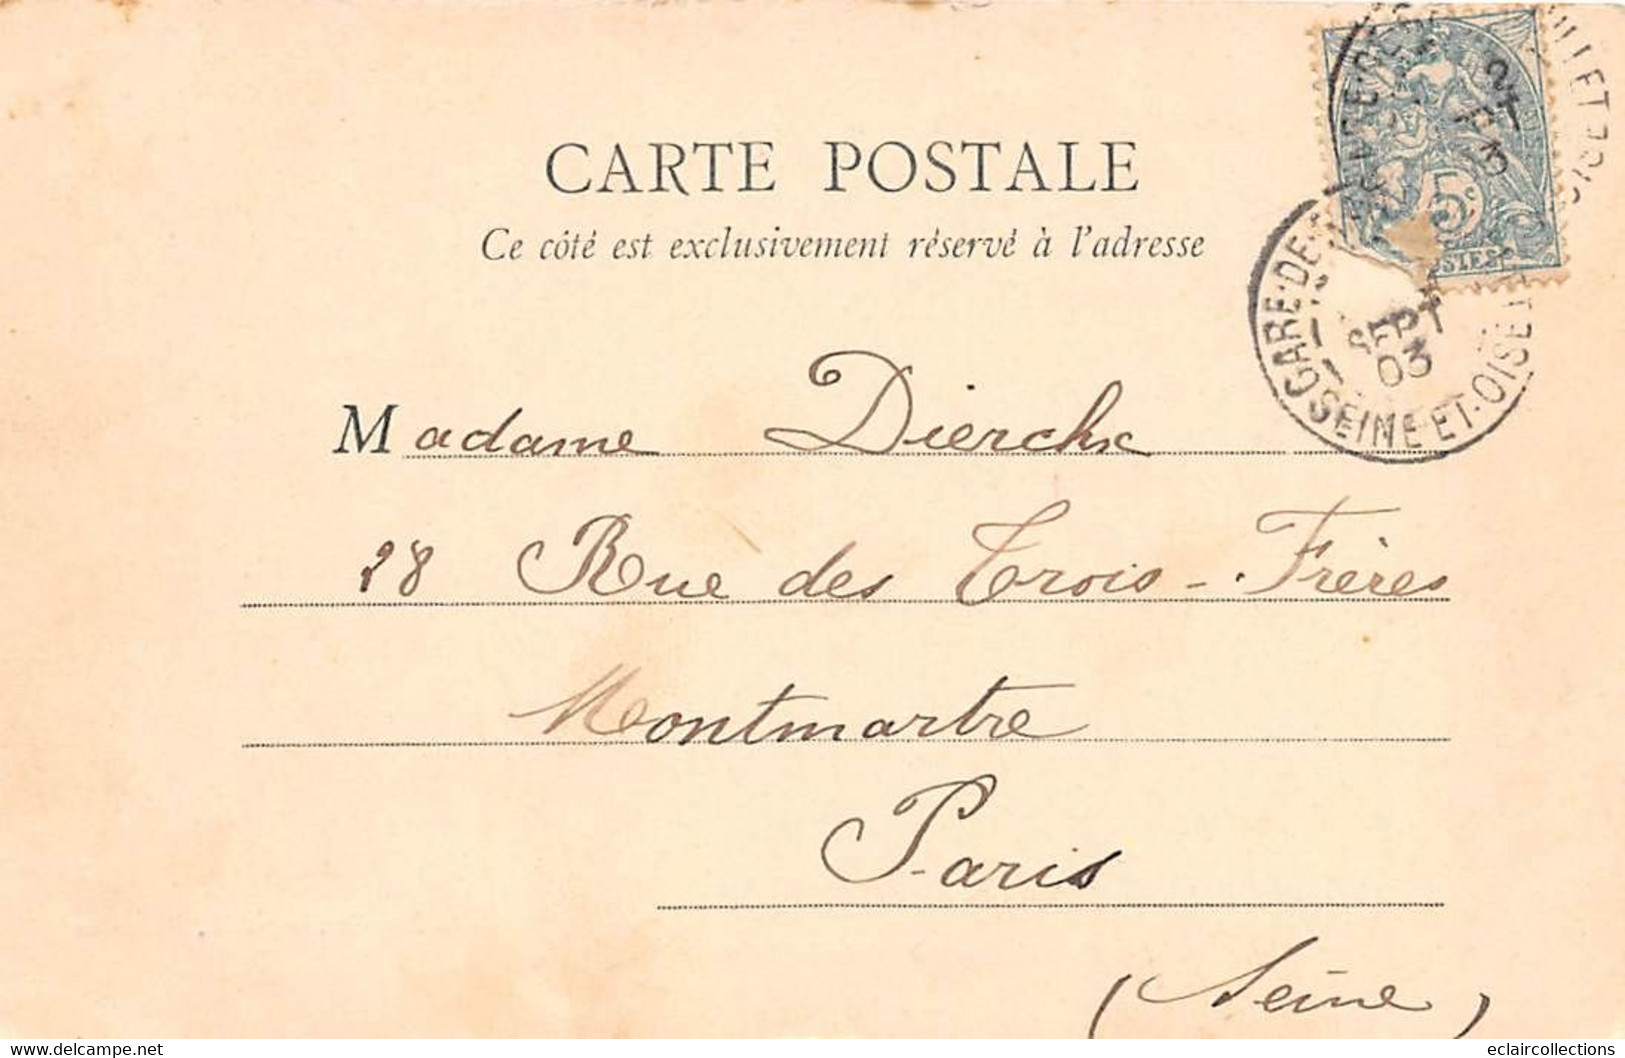 CARTE POSTALE
Ce côté est exclusivement réservé à l'adresse
5c
GARE·DE
SEPT
03
SEINE-ET-OISE
Madame Dierckx
28 Rue des Trois-Frères
Montmartre
Paris
(Seine)
eclaircollections